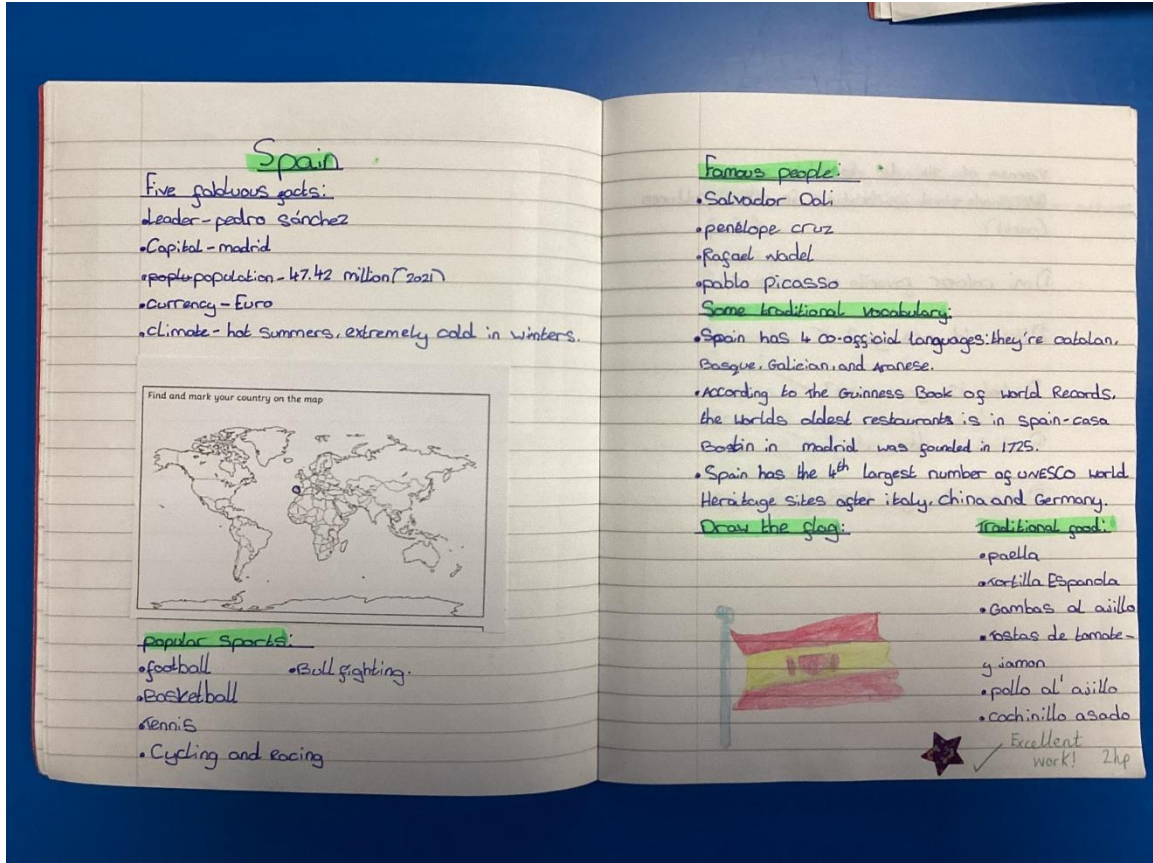 Spain
Five fabluous facts:
• Leader - pedro Sánchez
• Capital - madrid
• poplu population - 47.42 million (2021)
• currency - Euro
• climate - hot summers, extremely cold in winters.
Find and mark your country on the map
popular sports:
• football • Bull fighting.
• Basketball
• Tennis
• Cycling and Racing
Famous people:
• Salvador Dali
• penélope cruz
• Rafael nadel
• pablo picasso
Some traditional vocabulary:
• Spain has 4 co-official languages: they're catalan,
Basque, Galician, and Aranese.
• According to the Guinness Book of world Records,
the worlds oldest restaurants is in spain - casa
Bostin in madrid was founded in 1725.
• Spain has the 4th largest number of UNESCO world
Heraitage sites after italy, China and Germany.
Draw the flag:
Traditional food:
• paella
• tortilla Espanola
• Gambas al ajillo
• Tostas de tomate -
y jamon
• pollo al' ajillo
• cochinillo asado
Excellent
work! 2hp